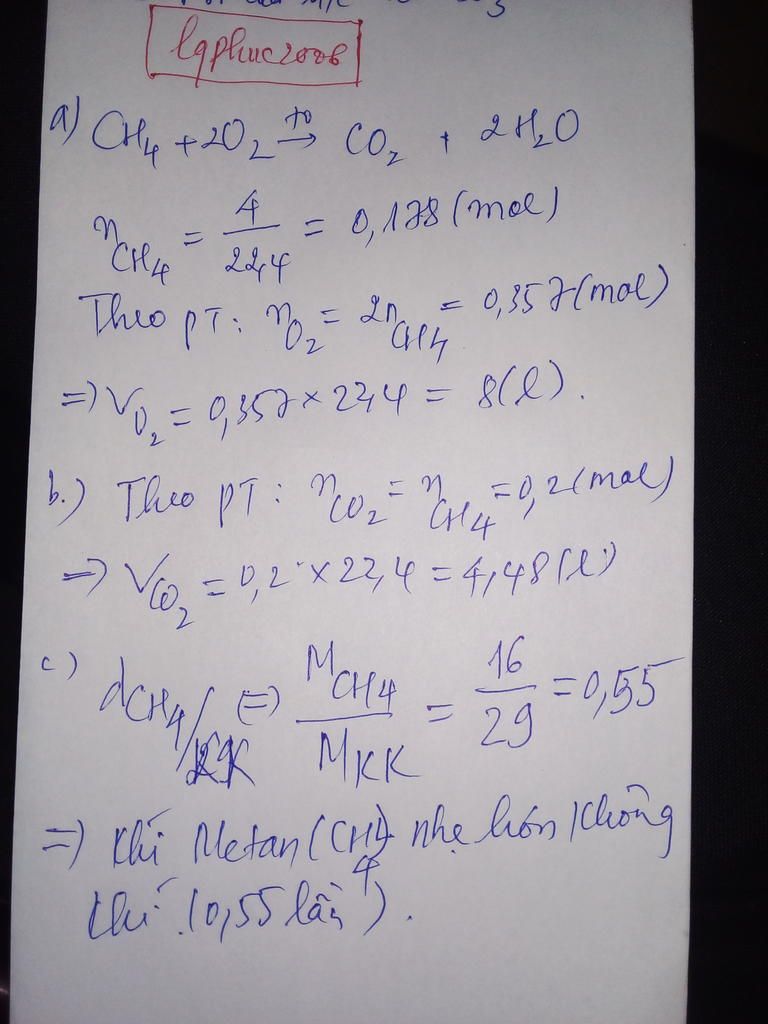 lqphuc2006
a) CH₄ + 2O₂ →(t⁰) CO₂ + 2H₂O
n_CH₄ = 4/22,4 = 0,178 (mol)
Theo PT: n_O₂ = 2n_CH₄ = 0,357 (mol)
=> V_O₂ = 0,357 × 22,4 = 8 (l).
b.) Theo PT: n_CO₂ = n_CH₄ = 0,2 (mol)
=> V_CO₂ = 0,2 × 22,4 = 4,48 (l)
c) d_CH₄/KK (=) M_CH₄/M_KK = 16/29 = 0,55
=> Khí Metan (CH₄) nhẹ hơn không
khí (0,55 lần).